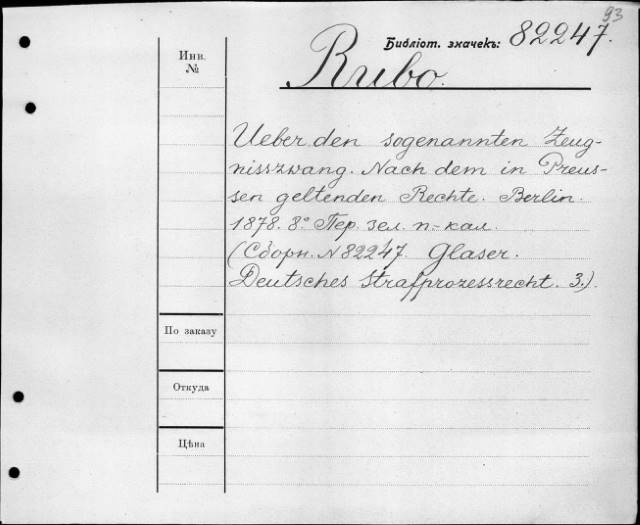 93
Библіот. значекъ: 82247.
Инв.
№
Rubo.
Ueber den sogenannten Zeug-
nisszwang. Nach dem in Preus-
sen geltenden Rechte. Berlin.
1878. 8° Пер. зел. п.-кал.
(Сборн. N 82247. Glaser.
Deutsches Strafprozessrecht. 3.).
По заказу
Откуда
Цѣна